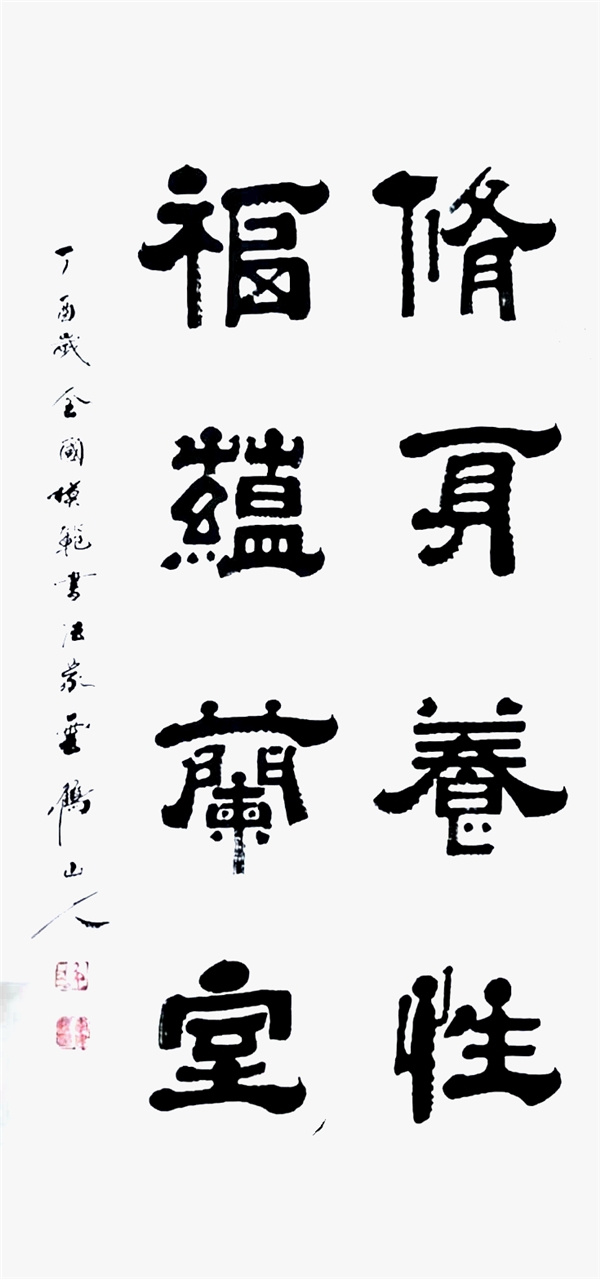 脩身養性
福蘊蘭室
丁酉歲全國模範書法家雲鶴山人